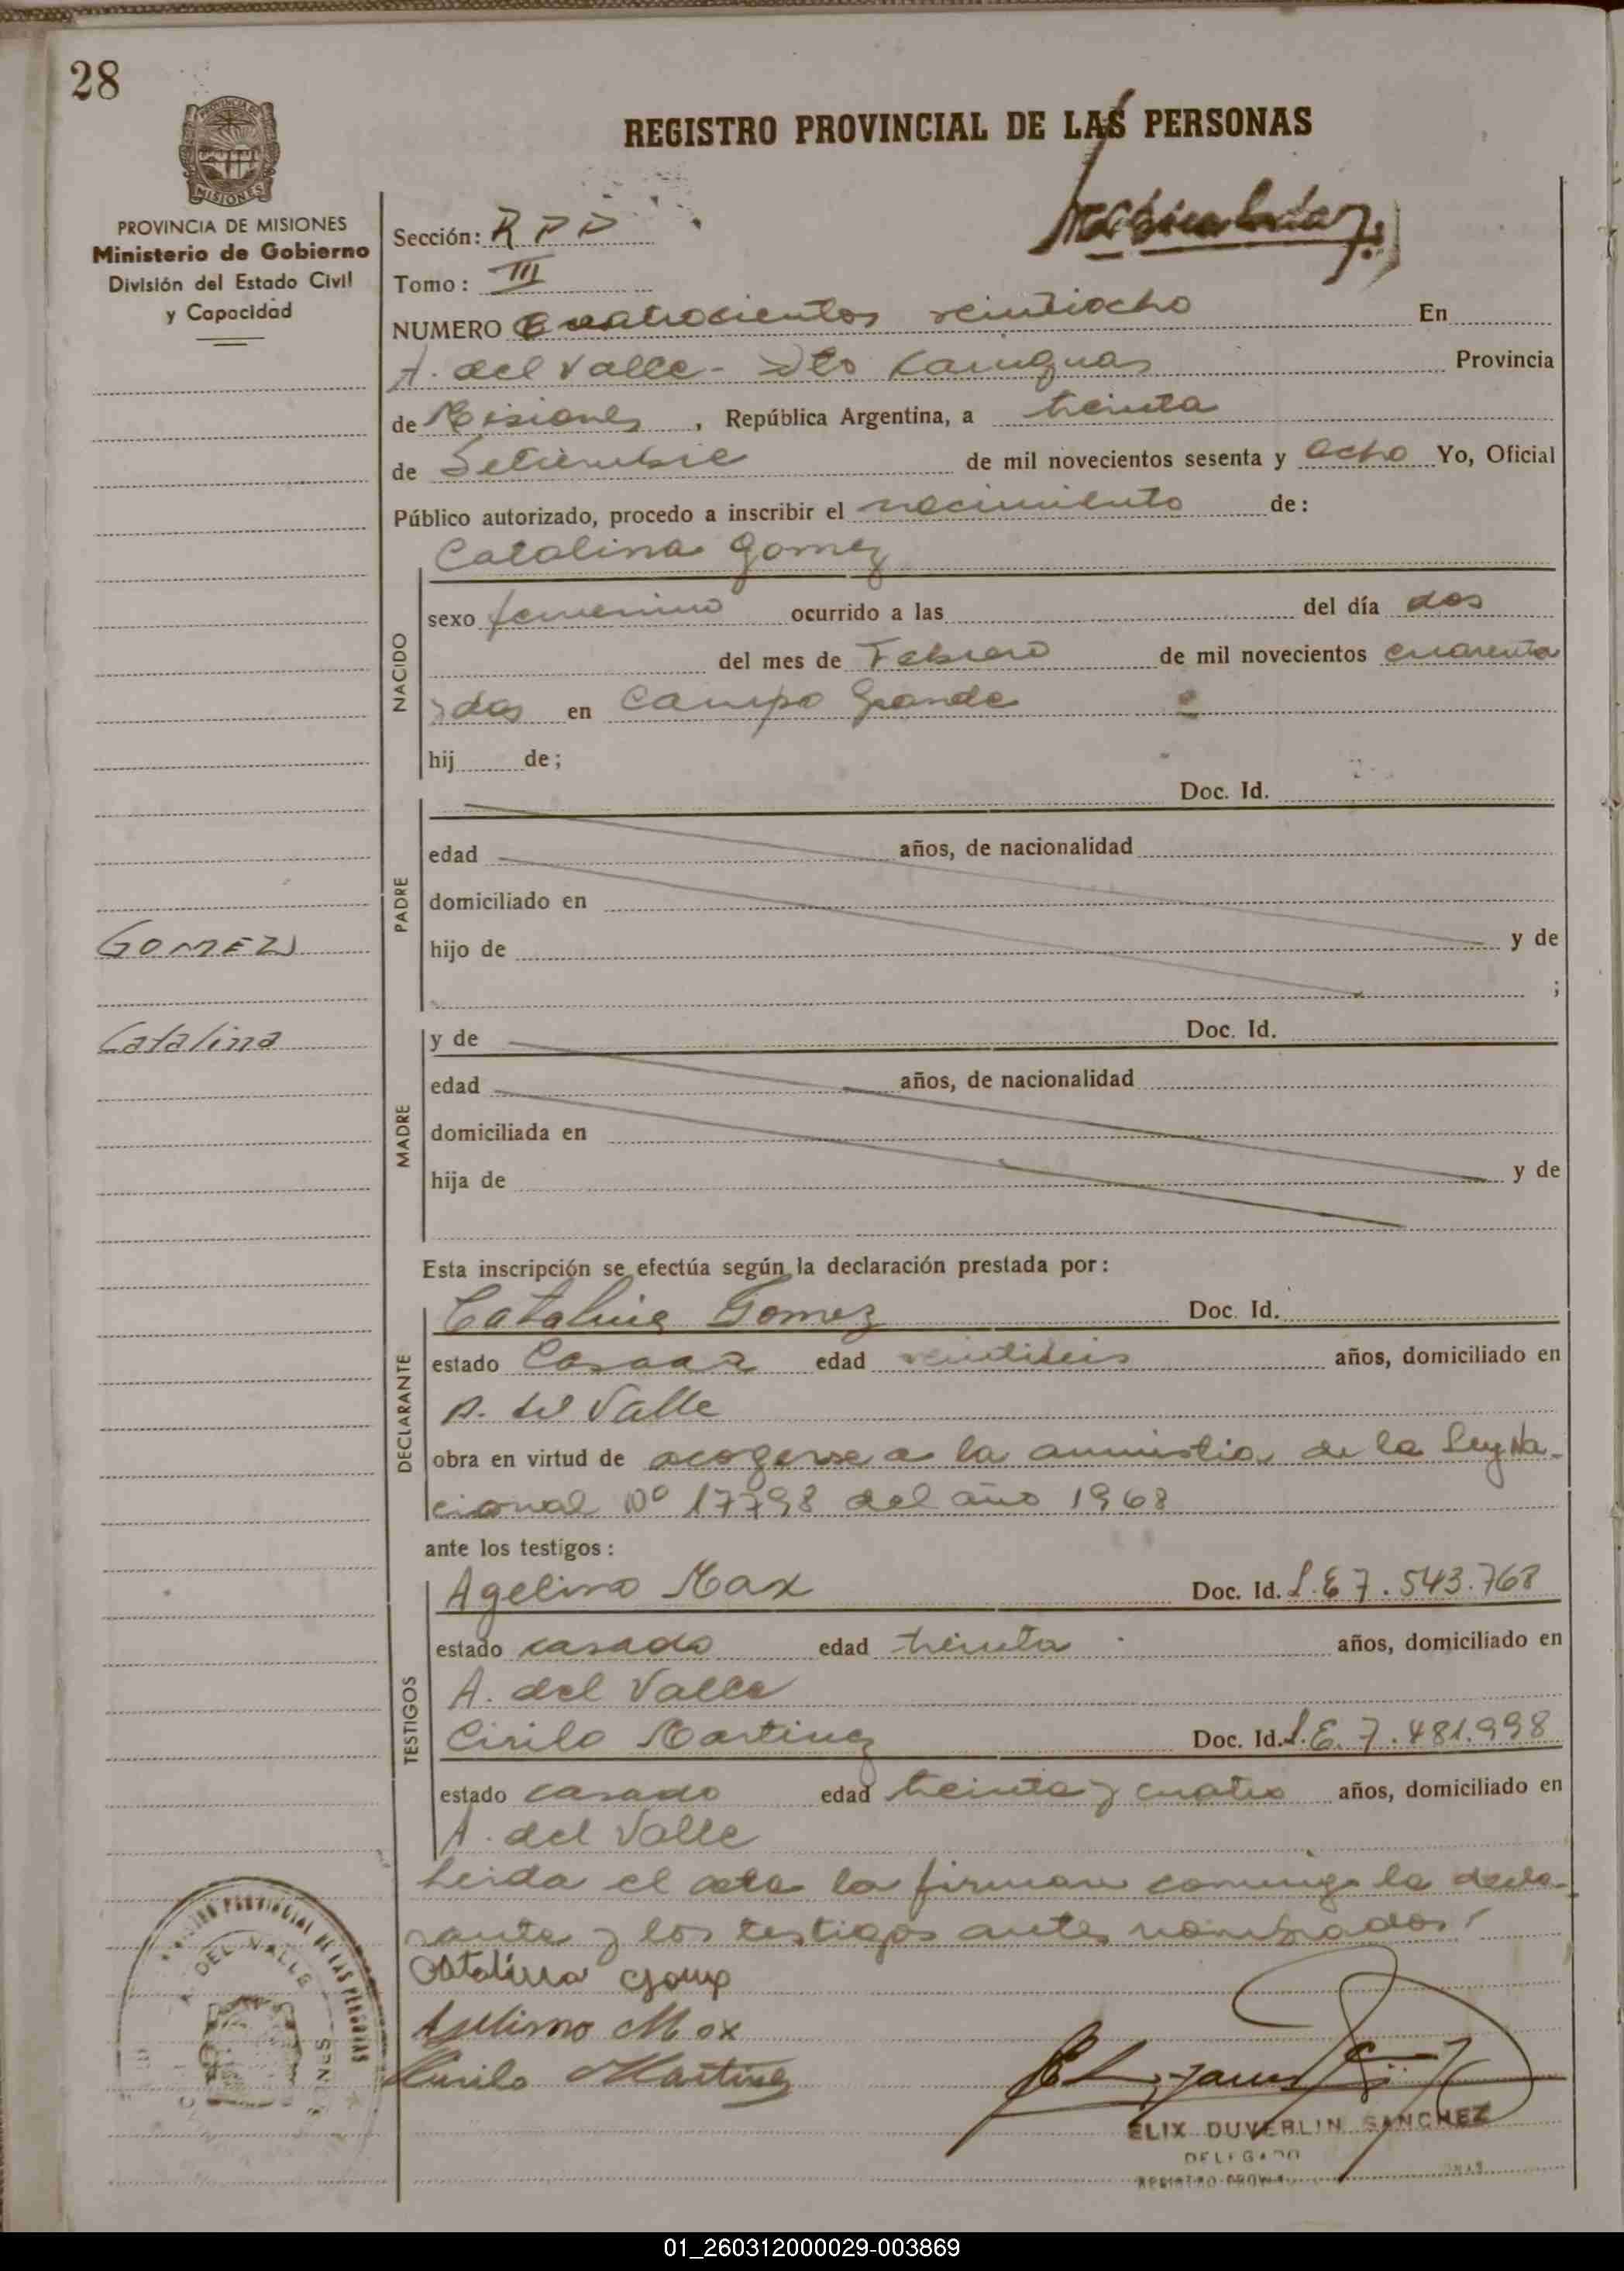 28
REGISTRO PROVINCIAL DE LAS PERSONAS
PROVINCIA DE MISIONES
Ministerio de Gobierno
División del Estado Civil
y Capacidad
Sección: R P P
Tomo: III
NUMERO Cuatrocientos veintiocho En
A. del Valle - Dto Cainguas Provincia
de Misiones, República Argentina, a treinta
de Setiembre de mil novecientos sesenta y ocho Yo, Oficial
Público autorizado, procedo a inscribir el nacimiento de:
Catalina Gomez
NACIDO
sexo femenino ocurrido a las del día dos
del mes de Febrero de mil novecientos cuarenta
y dos en Campo Grande
hij de;
PADRE
Doc. Id.
edad años, de nacionalidad
domiciliado en
hijo de y de
;
GOMEZ
Catalina
MADRE
y de Doc. Id.
edad años, de nacionalidad
domiciliada en
hija de y de
Esta inscripción se efectúa según la declaración prestada por:
DECLARANTE
Catalina Gomez Doc. Id.
estado Casada edad veintiseis años, domiciliado en
A. del Valle
obra en virtud de acogerse a la amnistia de la Ley Na-
cional Nº 17798 del año 1968
ante los testigos:
TESTIGOS
Agelino Max Doc. Id. L.E 7.543.768
estado casado edad treinta años, domiciliado en
A. del Valle
Cirilo Martinez Doc. Id. L.E. 7.481.998
estado casado edad treinta y cuatro años, domiciliado en
A. del Valle
Leida el acta la firman conmigo la decla-
rante y los testigos antes nombrados.
Catalina
Cirilo Martinez
REGISTRO PROVINCIAL DE LAS PERSONAS
A. DEL VALLE
ELIX DUVERLIN SANCHEZ
DELEGADO
01_260312000029-003869